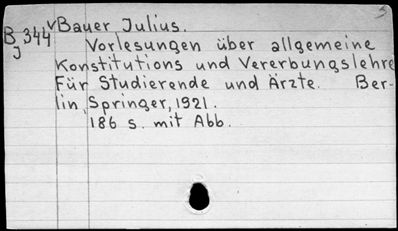 B 344 v Bauer Julius.
J Vorlesungen über allgemeine
Konstitutions und Vererbungslehre
Für Studierende und Ärzte. Ber-
lin, Springer, 1921.
186 s. mit Abb.